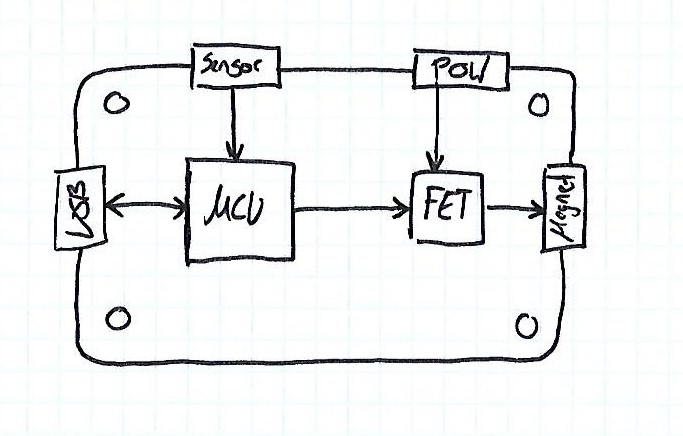 Sensor
POW
USB
μCU
FET
Magnet